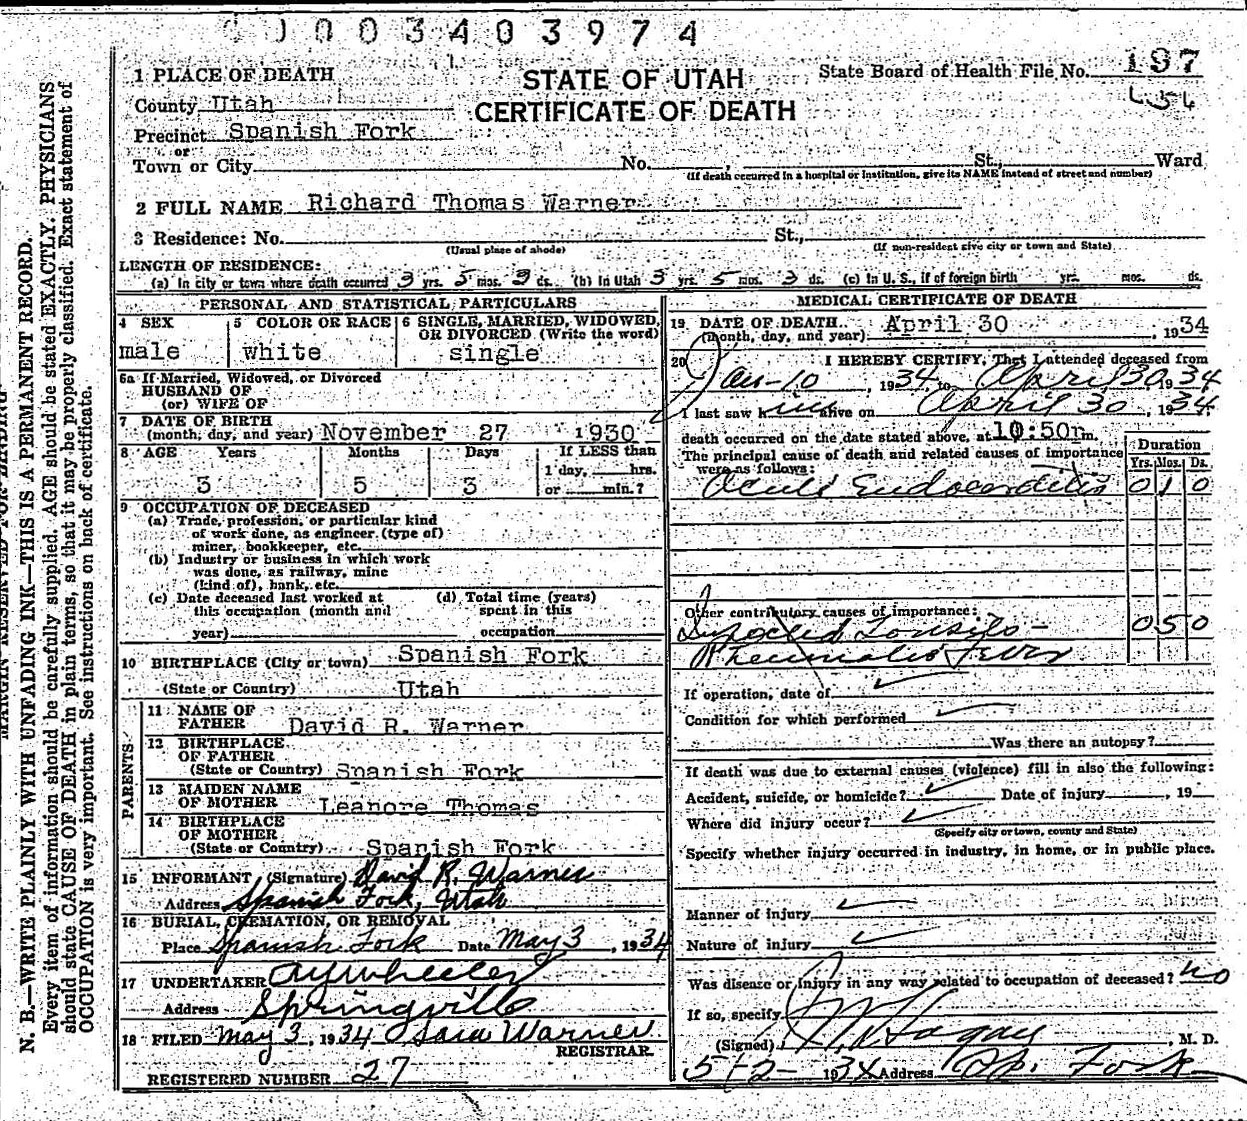 0003403974
1 PLACE OF DEATH
STATE OF UTAH
CERTIFICATE OF DEATH
State Board of Health File No. 197
County Utah
Precinct Spanish Fork
or
Town or City No. , St., Ward
(If death occurred in a hospital or institution, give its NAME instead of street and number)
2 FULL NAME Richard Thomas Warner
3 Residence: No. St.,
(Usual place of abode) (If non-resident give city or town and State)
LENGTH OF RESIDENCE:
(a) In city or town where death occurred 3 yrs. 5 mos. 3 ds. (b) In Utah 3 yrs. 5 mos. 3 ds. (c) In U. S., if of foreign birth yrs. mos. ds.
PERSONAL AND STATISTICAL PARTICULARS
4 SEX male
5 COLOR OR RACE white
6 SINGLE, MARRIED, WIDOWED, OR DIVORCED (Write the word) single
6a If Married, Widowed, or Divorced
HUSBAND OF
(or) WIFE OF
7 DATE OF BIRTH
(month, day, and year) November 27 1930
8 AGE Years Months Days If LESS than
1 day, hrs.
3 5 3 or min.?
9 OCCUPATION OF DECEASED
(a) Trade, profession, or particular kind
of work done, as engineer (type of)
miner, bookkeeper, etc.
(b) Industry or business in which work
was done, as railway, mine
(kind of), bank, etc.
(c) Date deceased last worked at
this occupation (month and
year)
(d) Total time (years)
spent in this
occupation
10 BIRTHPLACE (City or town) Spanish Fork
(State or Country) Utah
PARENTS
11 NAME OF
FATHER David R. Warner
12 BIRTHPLACE
OF FATHER
(State or Country) Spanish Fork
13 MAIDEN NAME
OF MOTHER Leanore Thomas
14 BIRTHPLACE
OF MOTHER
(State or Country) Spanish Fork
15 INFORMANT (Signature) David R. Warner
Address Spanish Fork, Utah
16 BURIAL, CREMATION, OR REMOVAL
Place Spanish Fork Date May 3, 1934
17 UNDERTAKER A Y Wheeler
Address Springville
18 FILED May 3, 1934 Sara Warner
REGISTRAR
REGISTERED NUMBER 27
MEDICAL CERTIFICATE OF DEATH
19 DATE OF DEATH
(month, day, and year) April 30, 1934
20 I HEREBY CERTIFY, That I attended deceased from
Jan-10, 1934, to April 30 1934
I last saw him alive on April 30, 1934
death occurred on the date stated above, at 10:50p m.
The principal cause of death and related causes of importance
were as follows:
Duration
Yrs. Mos. Ds.
Acute Endocarditis 0 1 0
Other contributory causes of importance:
Infected Tonsils - 0 5 0
Rheumatic Fever
If operation, date of
Condition for which performed
Was there an autopsy?
If death was due to external causes (violence) fill in also the following:
Accident, suicide, or homicide? Date of injury , 19
Where did injury occur?
(Specify city or town, county and State)
Specify whether injury occurred in industry, in home, or in public place.
Manner of injury
Nature of injury
Was disease or injury in any way related to occupation of deceased? no
If so, specify
(Signed) , M. D.
5-2- 1934 Address Sp. Fork
N. B.—WRITE PLAINLY WITH UNFADING INK—THIS IS A PERMANENT RECORD.
Every item of information should be carefully supplied. AGE should be stated EXACTLY. PHYSICIANS
should state CAUSE OF DEATH in plain terms, so that it may be properly classified. Exact statement of
OCCUPATION is very important. See instructions on back of certificate.